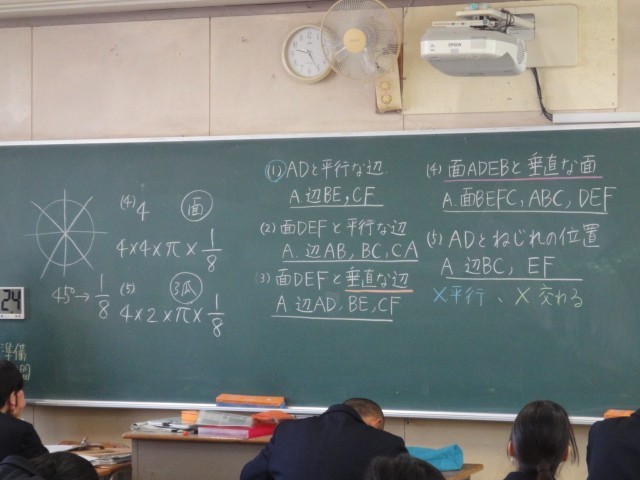 (4) 4 面
4×4×π×1/8
45°→1/8
(5) 弧
4×2×π×1/8
(1) ADと平行な辺
A.辺BE,CF
(2) 面DEFと平行な辺
A.辺AB,BC,CA
(3) 面DEFと垂直な辺
A 辺AD,BE,CF
(4) 面ADEBと垂直な面
A.面BEFC,ABC,DEF
(5) ADとねじれの位置
A 辺BC, EF
×平行、×交わる
EPSON
24
準備